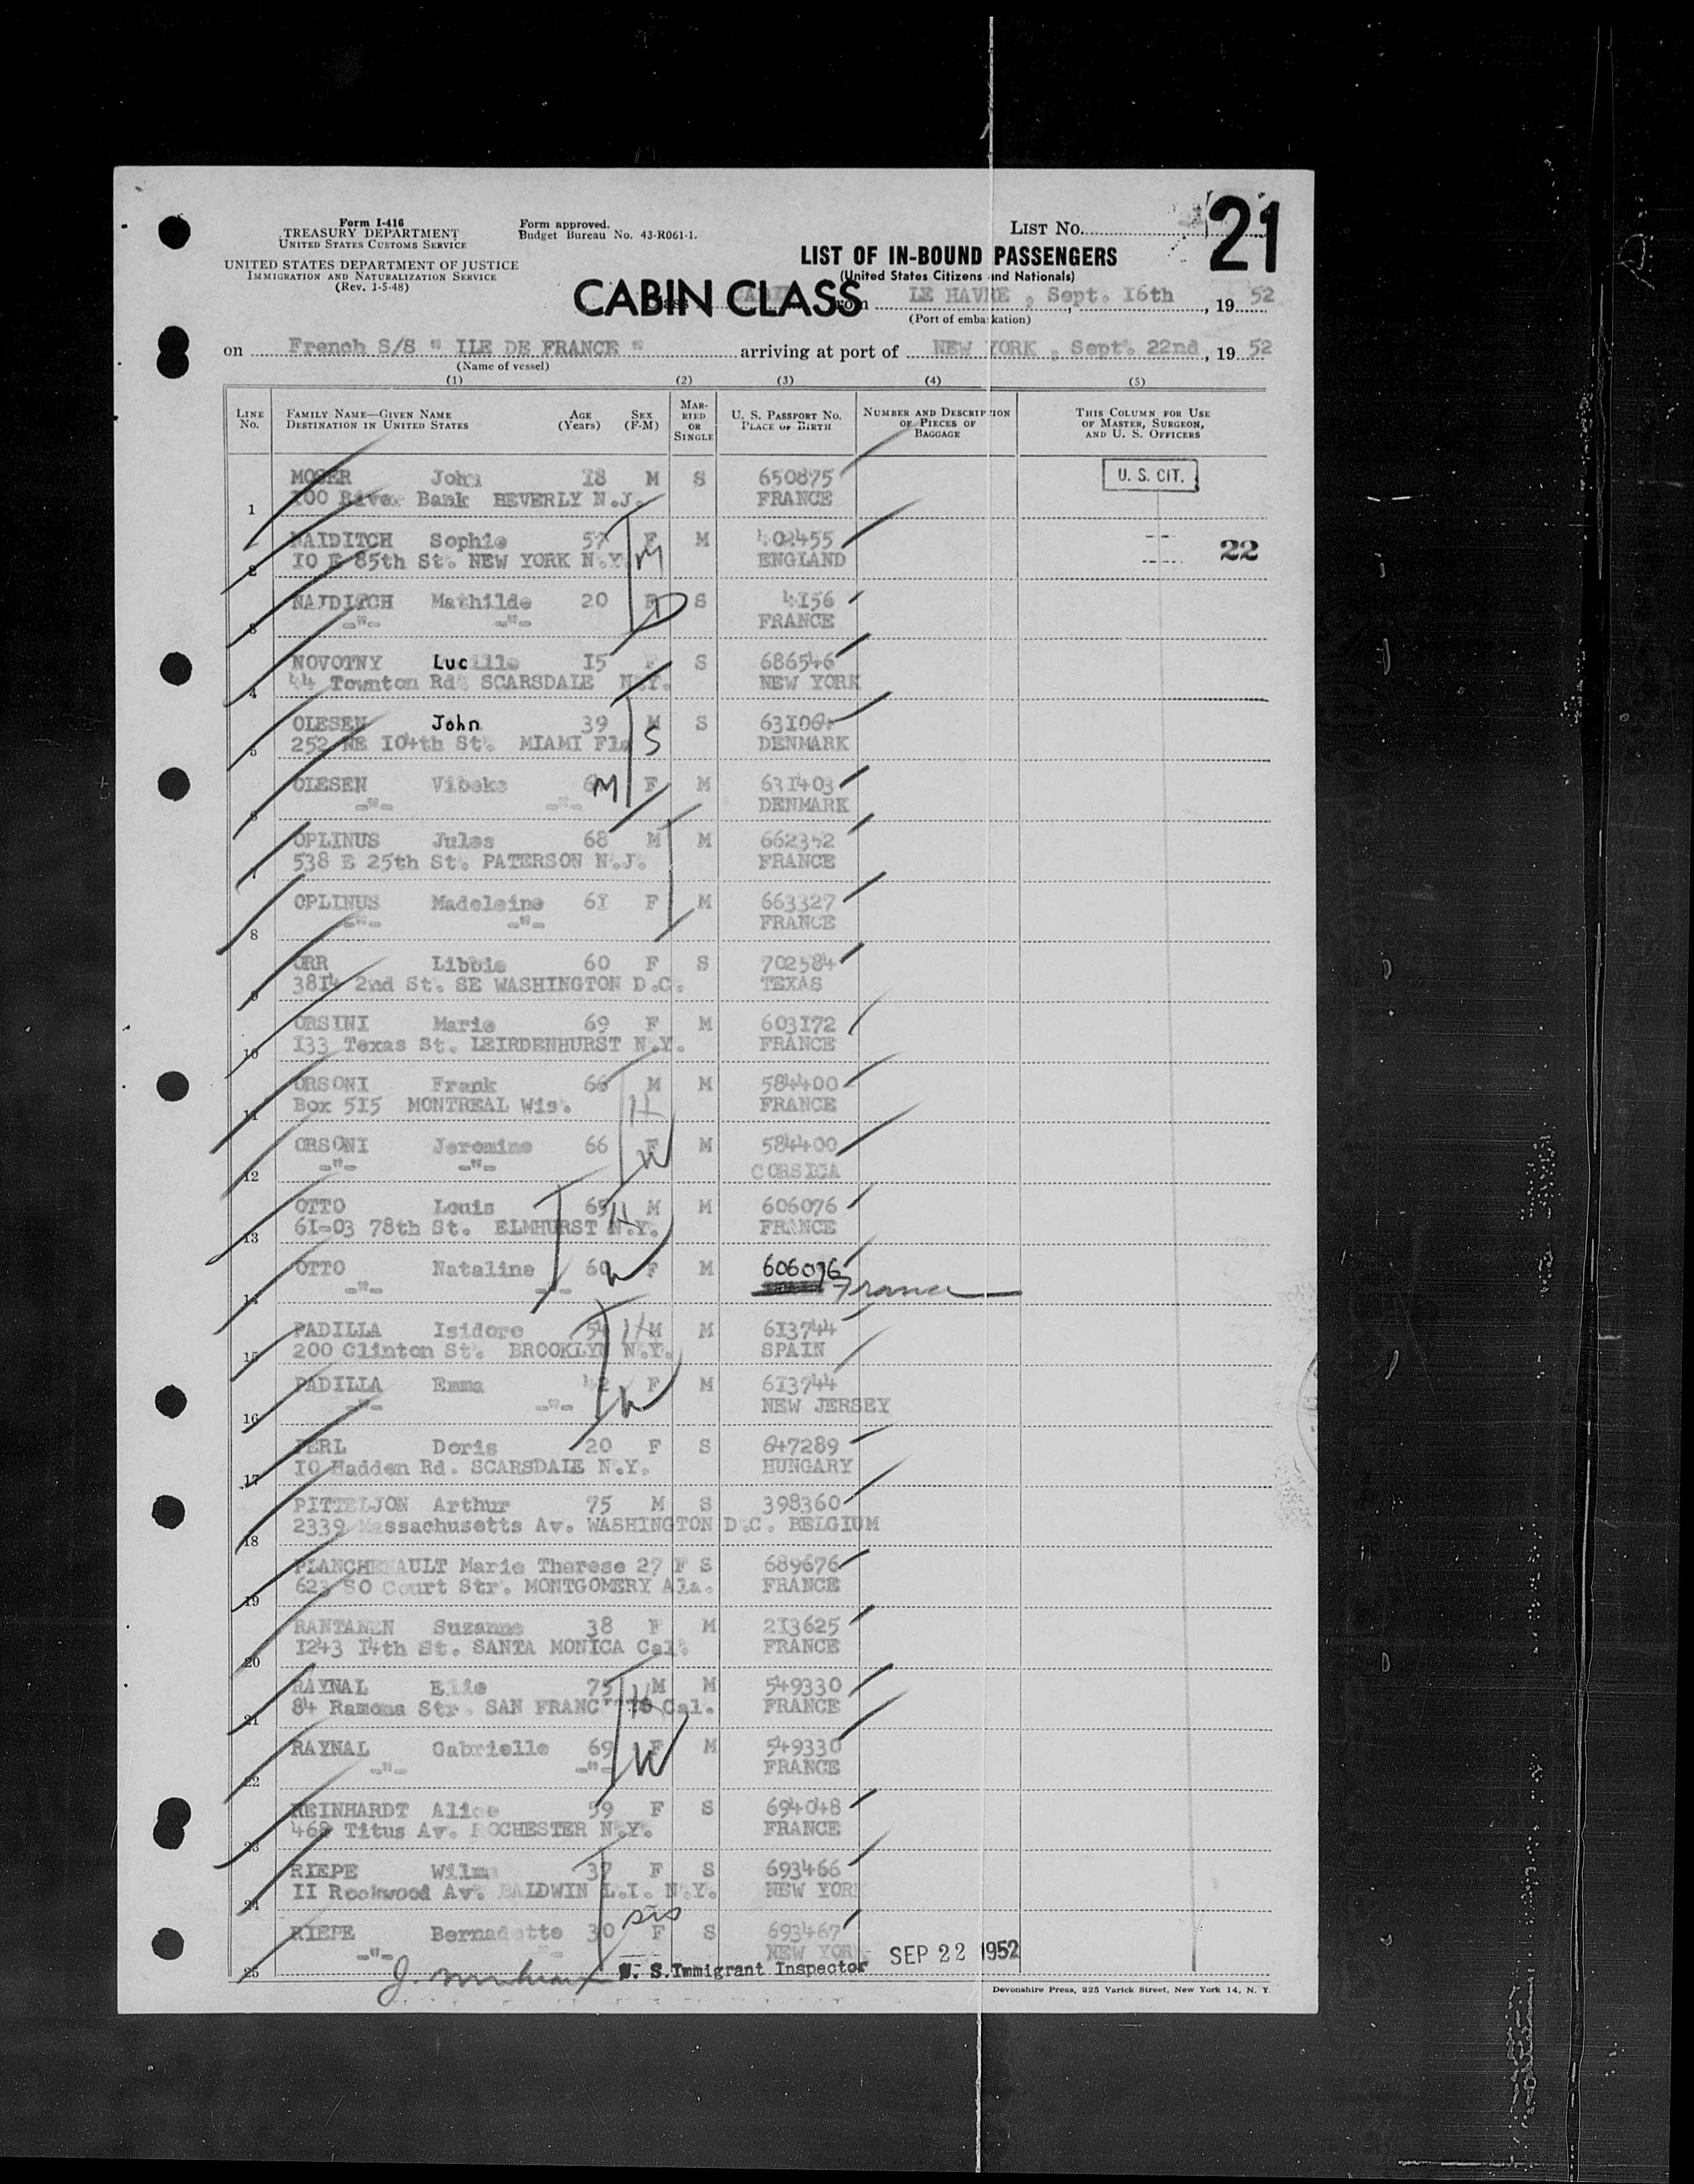 Form I-416
TREASURY DEPARTMENT
UNITED STATES CUSTOMS SERVICE
UNITED STATES DEPARTMENT OF JUSTICE
IMMIGRATION AND NATURALIZATION SERVICE
(Rev. 1-5-48)
Form approved.
Budget Bureau No. 43-R061-1.
LIST No. 21
LIST OF IN-BOUND PASSENGERS
(United States Citizens and Nationals)
CABIN CLASS from LE HAVRE, Sept. 16th, 19 52
(Port of embarkation)
on French S/S " ILE DE FRANCE " arriving at port of NEW YORK, Sept. 22nd, 19 52
(Name of vessel)
(1) (2) (3) (4) (5)
LINE No. FAMILY NAME—GIVEN NAME DESTINATION IN UNITED STATES AGE (Years) SEX (F-M) MARRIED OR SINGLE U. S. PASSPORT No. PLACE OF BIRTH NUMBER AND DESCRIPTION OF PIECES OF BAGGAGE THIS COLUMN FOR USE OF MASTER, SURGEON, AND U. S. OFFICERS
MOSER John 18 M S 650875 U. S. CIT.
1 100 River Bank BEVERLY N.J. FRANCE
NAIDITCH Sophie 57 F M 402455 22
2 10 E 85th St. NEW YORK N.Y. M ENGLAND
NAIDITCH Mathilde 20 F D S 4156
3 -"- -"- FRANCE
NOVOTNY Lucille 15 F S 686546
4 44 Townton Rd. SCARSDALE N.Y. NEW YORK
OLESEN John 39 M S
5 252 NE 104th St. MIAMI Fla S DENMARK
OLESEN Vibeke M F M 631403
6 -"- -"- DENMARK
OPLINUS Jules 68 M M 662352
7 538 E 25th St. PATERSON N.J. FRANCE
OPLINUS Madeleine 61 F M 663327
8 -"- -"- FRANCE
ORR Libbie 60 F S 702584
9 3814 2nd St. SE WASHINGTON D.C. TEXAS
ORSINI Marie 69 F M 603172
10 133 Texas St. LEIRDENHURST N.Y. FRANCE
ORSONI Frank 66 M M 584400
11 Box 515 MONTREAL Wis. H FRANCE
ORSONI Jeromine 66 F M 584400
12 -"- -"- W CORSICA
OTTO Louis 65 H M M 606076
13 61-03 78th St. ELMHURST N.Y. FRANCE
OTTO Nataline 60 W F M 606076
14 -"- -"- France
PADILLA Isidore 54 H M M 613744
15 200 Clinton St. BROOKLYN N.Y. SPAIN
PADILLA Emma 42 F M 613744
16 -"- -"- W NEW JERSEY
PERL Doris 20 F S 647289
17 10 Hadden Rd. SCARSDALE N.Y. HUNGARY
PITTELJON Arthur 75 M S 398360
18 2339 Massachusetts Av. WASHINGTON D.C. BELGIUM
PLANCHENAULT Marie Therese 27 F S 689676
19 623 SO Court Str. MONTGOMERY Ala. FRANCE
RANTANEN Suzanne 38 F M 213625
20 1243 14th St. SANTA MONICA Cal. FRANCE
RAYNAL Elie 75 M M 549330
21 84 Ramona Str. SAN FRANC Cal. H FRANCE
RAYNAL Gabrielle 69 F M 549330
22 -"- -"- W FRANCE
REINHARDT Alice 59 F S 694048
23 468 Titus Av. ROCHESTER N.Y. FRANCE
RIEPE Wilma 37 F S 693466
24 11 Rockwood Av. BALDWIN L.I. N.Y. NEW YORK
sis
RIEPE Bernadette 30 F S 693467
25 -"- -"- NEW YORK
U. S. Immigrant Inspector SEP 22 1952
Devonshire Press, 225 Varick Street, New York 14, N. Y.